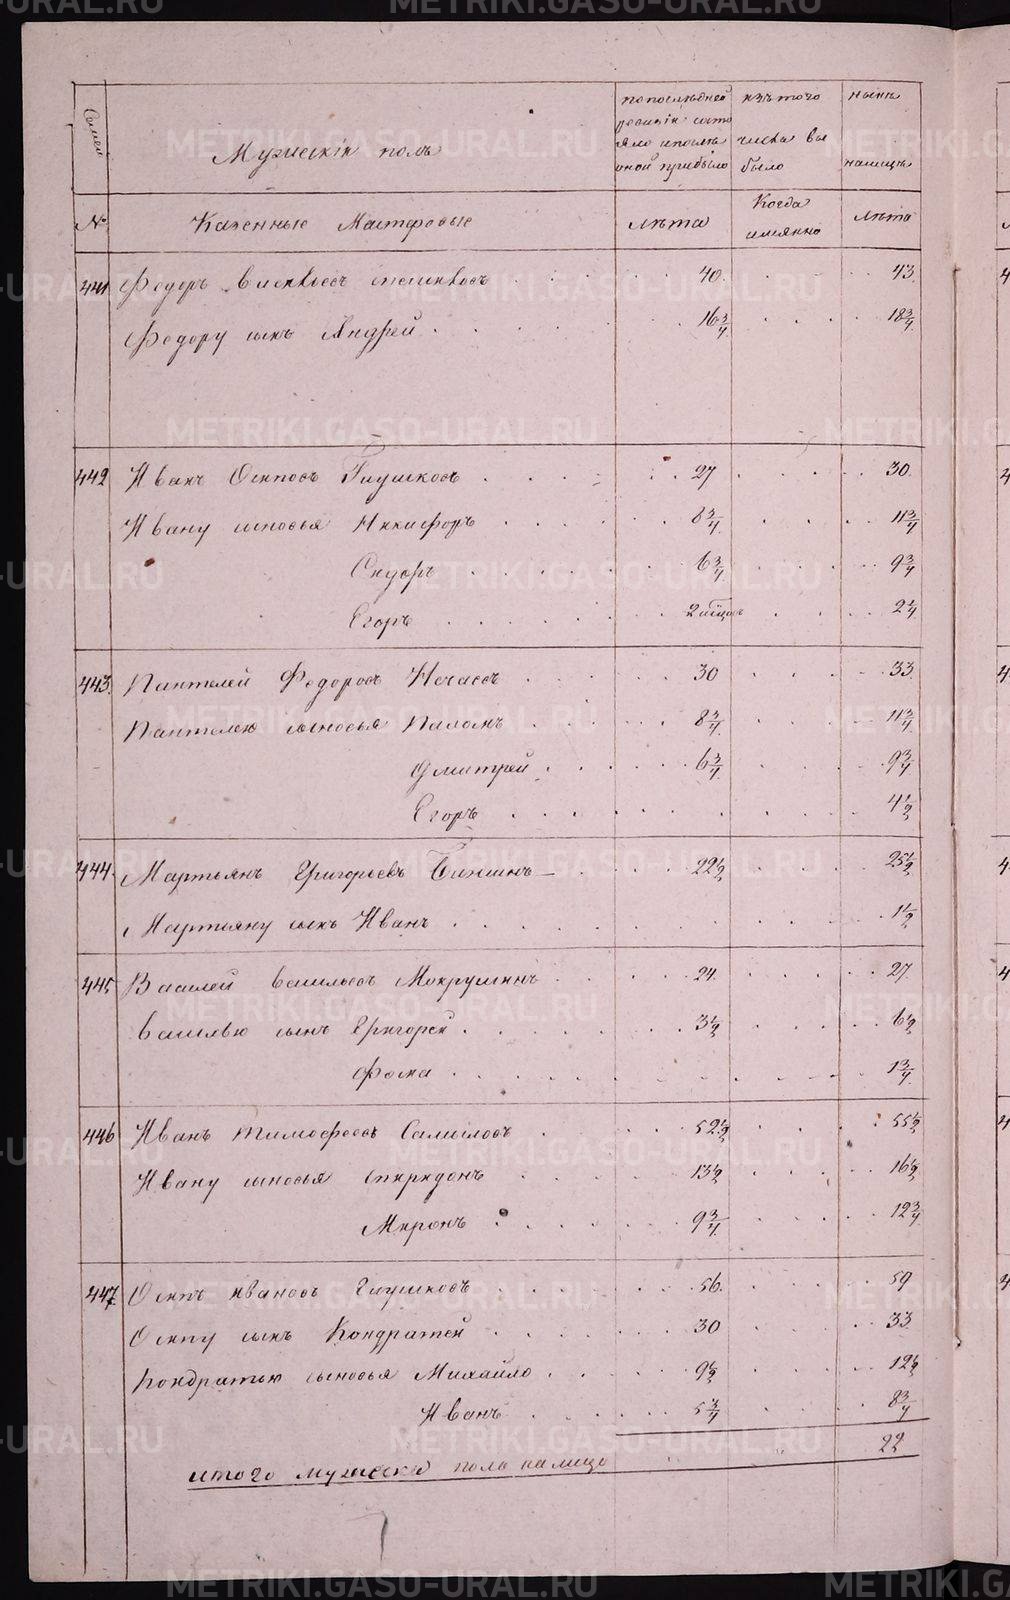 METRIKI.GASO-URAL.RU
Семей
Мужескiй полъ
по последней ревизiи состояло и после оной прибыло
изъ того числа выбыло
ныне налицъ
№
Казенные Мастеровые
лета
Когда имянно
лета
441 Федоръ 40. 43.
Федору сынъ Андрей 16 3/4 18 3/4
442 Иванъ Осиповъ Глушковъ 27 30.
Ивану сыновья Никифоръ 8 3/4 11 3/4
Сидоръ 6 3/4 9 3/4
Егоръ 2 мцовъ 2 1/4
443. Пантелей Федоровъ Нечаевъ 30 33.
Пантелею сыновья 8 3/4 11 3/4
Дмитрей 6 3/4 9 3/4
Егоръ 4 1/2
444. Мартьянъ Григорьевъ 22 1/2 25 1/2
Мартьяну сынъ Иванъ 1 1/2
445 Василей Васильевъ Мокрушинъ 24. 27.
Василью сынъ Григорей 3 1/2 6 1/2
Фома 1 3/4
446 Иванъ Тимофеевъ Самыловъ 52 1/2 55 1/2
Ивану сыновья Спиридонъ 13 1/2 16 1/2
Миронъ 9 3/4 12 3/4
447 Осипъ Ивановъ Глушковъ 56. 59
Осипу сынъ Кондратей 30 33.
Кондратью сыновья Михайло 9 1/2 12 1/2
Иванъ 5 3/4 8 3/4
итого мужеска пола налицо 22